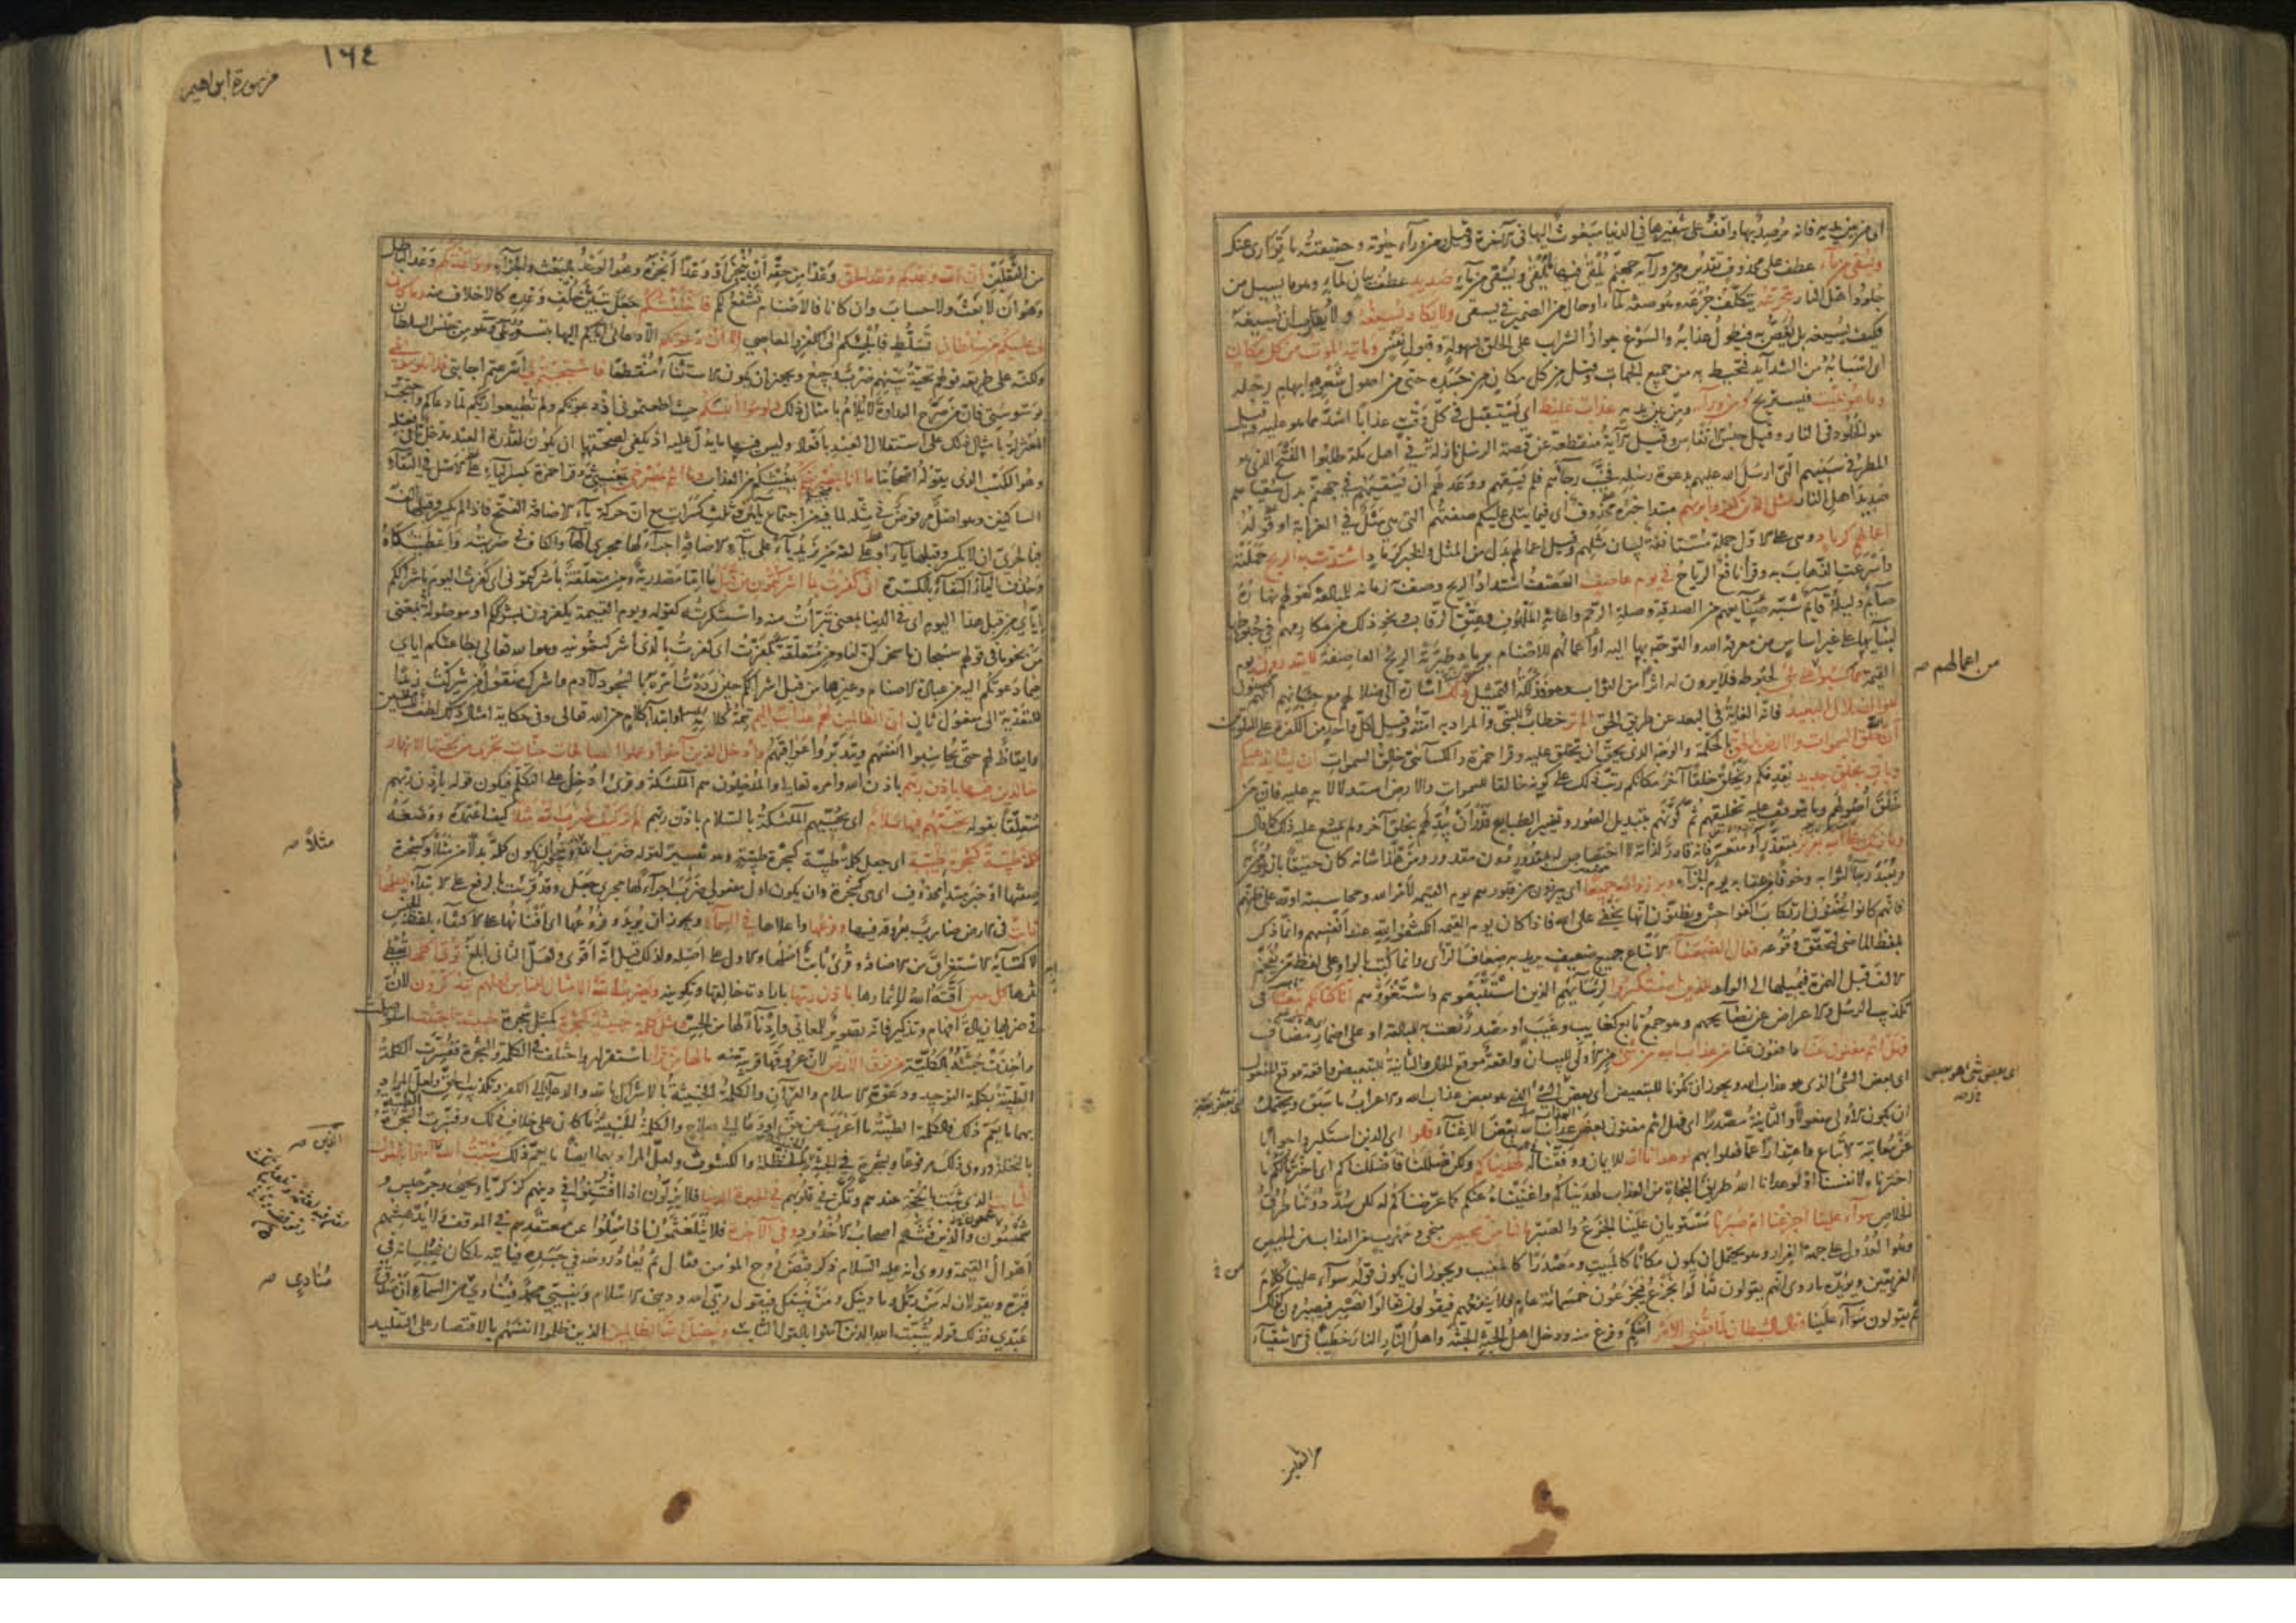 اى من بين يديه فانه مرصد بها واقف على شفيرها فى الدنيا مبعوث اليها فى الآخرة وقيل من وراء حيوته وحقيقته ما توارى عنك
ويسقى من ماء عطف على محذوف تقديره من ورآئه جهنم يلقى فيها ما يلقى ويسقى من ماء صديد عطف بيان لماء وهو ما يسيل من
جلود اهل النار يتجرعه يتكلف جرعه وهو صفة لماء او حال من الضمير فى يسقى ولا يكاد يسيغه ولا يقارب ان يسيغه
فكيف يسيغه بل يغص به فيطول عذابه والسوغ جواز الشراب على الحلق بسهولة وقبول نفس وياتيه الموت من كل مكان
اى اسبابه من الشدآيد فتحيط به من جميع الجهات وقيل من كل مكان من جسده حتى من اصول شعره وابهام رجله
وما هو بميت فيستريح ومن ورآئه ومن بين يديه عذاب غليظ اى يستقبل فى كل وقت عذابا اشد مما هو عليه وقيل
هو الخلود فى النار وقيل حبس الانفاس وقيل الآية منقطعة عن قصة الرسل نازلة فى اهل مكة طلبوا الفتح الذى هو
المطر فى سنيهم التى ارسل الله عليهم بدعوة رسله فخيب رجآءهم فلم يسقهم ووعد لهم ان يسقيهم فى جهنم بدل سقياهم
صديد اهل النار مثل الذين كفروا بربهم مبتدا خبره محذوف اى فيما يتلى عليكم صفتهم التى هى مثل فى الغرابة او قوله
اعمالهم كرماد وهى على الاول جملة مستانفة لبيان مثلهم وقيل اعمالهم بدل من المثل والخبر كرماد اشتدت به الريح حملته
واسرعت الذهاب به وقرأ نافع الرياح فى يوم عاصف العصف اشتداد الريح وصف به زمانه للمبالغة كقولهم نهاره
صآئم وليله قآئم شبه صنآيعهم من الصدقة وصلة الرحم واغاثة الملهوف وعتق الرقاب ونحو ذلك من مكارمهم فى حبوطها
لبنآيها على غير اساس من معرفة الله والتوجه بها اليه او اعمالهم للاصنام برماد طيرته الريح العاصفة لا يقدرون يوم
القيمة مما كسبوا على شى لحبوطه فلا يرون له اثرا من الثواب وهو فذلكة التمثيل ذلك اشارة الى ضلالهم مع حسبانهم انهم محسنون
هو الضلال البعيد فانه الغاية فى البعد عن طريق الحق الم تر خطاب للنبى والمراد به امته وقيل لكل واحد من الكفرة على التلوين
ان الله خلق السموات والارض بالحق بالحكمة والوجه الذى يحق ان يخلق عليه وقرا حمزة والكسآئى خالق السموات ان يشا يذهبكم
ويات بخلق جديد يعدمكم ويخلق خلقا آخر مكانكم رتب ذلك على كونه خالقا للسموات والارض استدلالا به عليه فان من
خلق اصولهم وما يتوقف عليه تخليقهم ثم كونهم بتبديل الصور وتغيير الطبايع قادر ان يبدلهم بخلق آخر ولم يمتنع عليه ذلك كما قال
وما ذلك على الله بعزيز بمتعذر او متعسر فانه قادر لذاته لا اختصاص له بمقدور دون مقدور ومن هذا شانه كان حقيقا بان يؤمن به
ويعبد رجآء لثوابه وخوفا من عقابه يوم الجزآء وبرزوا لله جميعا اى يبرزون من قبورهم يوم القيمة لامر الله ومحاسبته او لله على ظنهم
فانهم كانوا يخفون ارتكاب الفواحش ويظنون انها تخفى على الله فاذا كان يوم القيمة انكشفوا لله عند انفسهم وانما ذكر
بلفظ الماضى لتحقق وقوعه فقال الضعفآء الاتباع جمع ضعيف يريد به ضعاف الرأى وانما كتب بالواو على لفظ من يفخم
الالف قبل الهمزة فيميلها الى الواو للذين استكبروا لرؤسآئهم الذين استتبعوهم واستغووهم انا كنا لكم تبعا فى
تكذيب الرسل والاعراض عن نصآيحهم وهو جمع تابع كغايب وغيب او مصدر نعت به للمبالغة او على اضمار مضاف
فهل انتم مغنون عنا دافعون عنا من عذاب الله من شئ من الاولى للبيان واقعة موقع الحال والثانية للتبعيض واقعة موقع المفعول
اى بعض الشئ الذى هو عذاب الله ويجوز ان تكونا للتبعيض اى بعض الشئ الذى هو بعض عذاب الله والاعراب ما سبق ويحتمل
ان يكون الاولى مفعولا والثانية مصدرا اى فهل انتم مغنون بعض العذاب بعض الاغنآء قالوا اى الذين استكبروا جوابا
عن معاتبة الاتباع واعتذارا عما فعلوا بهم لو هدانا الله للايمان ووفقنا له لهديناكم ولكن ضللنا فاضللناكم اى اخترنا لكم ما
اخترناه لانفسنا او لو هدانا الله طريق النجاة من العذاب لهديناكم واغنيناه عنكم كما عرضناكم له لكن سد دوننا طريق
الخلاص سوآء علينا اجزعنا ام صبرنا مستويان علينا الجزع والصبر مالنا من محيص منجى ومهرب من العذاب من الحيص
وهو العدول على جهة الفرار وهو يحتمل ان يكون مكانا كالمبيت ومصدرا كالمغيب ويجوز ان يكون قوله سوآء علينا كلام
الفريقين ويؤيده ما روى انهم يقولون تعالوا نجزع فيجزعون خمسمائة عام فلا ينفعهم فيقولون تعالوا نصبر فيصبرون كذلك
ثم يقولون سوآء علينا وقال الشيطان لما قضى الامر احكم وفرغ منه ودخل اهل الجنة الجنة واهل النار النار خطيبا فى الاشقيآء
من اعمالهم صح
من الثقلين
١٦٤
من سورة ابراهيم
من الثقلين ان الله وعدكم وعد الحق وعدا من حقه ان ينجز او وعدا انجزه وهو الوعد بالبعث والجزآء ووعدتكم وعد الباطل
وهو ان لا بعث ولا حساب وان كانا فالاصنام تشفع لكم فاخلفتكم جعل تبين خلف وعده كالاخلاف منه وما كان
لى عليكم من سلطان تسلط فالجئكم الى الكفر والمعاصى الا ان دعوتكم الا دعائى اياكم اليها بتسويلى وهو ليس من جنس السلطان
ولكنه على طريقة قولهم تحية بينهم ضرب وجيع ويجوز ان يكون الاستثنآء منقطعا فاستجبتم لى اسرعتم اجابتى فلا تلومونى
بوسوستى فان من صرح العداوة لا يلام بامثال ذلك ولوموا انفسكم حيث اطعتمونى اذ دعوتكم ولم تطيعوا ربكم لما دعاكم واحتجت
المعتزلة بامثال ذلك على استقلال العبد بافعاله وليس فيها ما يدل عليه اذ يكفى لصحتها ان يكون لقدرة العبد مدخل ما فى فعله
وهو الكسب الذى يقوله اصحابنا ما انا بمصرخكم بمغيثكم من العذاب وما انتم بمصرخى بمغيثى وقرا حمزة بكسر اليآء على الاصل فى التقآء
الساكنين وهو اصل مرفوض فى مثله لما فيه من اجتماع يآءين وثلث كسرات مع ان حركة يآء الاضافة الفتح فاذا لم يكسر وقبلها الف
فبالحرى ان لا يكسر وقبلها يآء او على لغة من يزيد يآء على يآء الاضافة اجرآء لها مجرى الهآء والكاف فى ضربته واعطيتكاه
وحذف اليآء اكتفآء بالكسرة انى كفرت بما اشركتمون من قبل ما اما مصدرية ومن متعلقة باشركتمونى اى كفرت اليوم باشراككم
اياى من قبل هذا اليوم اى فى الدنيا بمعنى تبرأت منه واستنكرته كقوله ويوم القيمة يكفرون بشرككم او موصولة بمعنى
من نحو ما فى قولهم سبحان ما سخركن لنا ومن متعلقة بكفرت اى كفرت بالذى اشركتمونيه وهو الله تعالى بطاعتكم اياى
فيما دعوتكم اليه من عبادة الاصنام وغيرها من قبل اشراككم حين رددت امره بالسجود لآدم واشرك منقول من شركت زيدا
للتعدية الى مفعول ثان ان الظالمين لهم عذاب اليم تتمة كلامه او ابتدآء كلام من الله تعالى وفى حكاية امثال ذلك لطف للسامعين
وايقاظ لهم حتى يحاسبوا انفسهم ويتدبروا عواقبهم وادخل الذين آمنوا وعملوا الصالحات جنات تجرى من تحتها الانهار
خالدين فيها باذن ربهم باذن الله وامره تعالى والمدخلون هم الملئكة وقرئ ادخل على التكلم فيكون قوله باذن ربهم
متعلقا بقوله تحيتهم فيها سلام اى يحييهم الملئكة بالسلام باذن ربهم الم تر كيف ضرب الله مثلا كيف اعتمده ووضعه
كلمة طيبة كشجرة طيبة اى جعل كلمة طيبة كشجرة طيبة وهو تفسير لقوله ضرب الله مثلا ويجوز ان يكون كلمة بدلا من مثلا وكشجرة
صفتها او خبر مبتدا محذوف اى هى كشجرة وان يكون اول مفعولى ضرب اجرآء لها مجرى جعل وقد قرئت بالرفع على الابتدآء اصلها
ثابت فى الارض ضارب بعروقه فيها وفرعها واعلاها فى السمآء ويجوز ان يريد وفروعها اى افنانها على الاكتفآء بلفظ الجنس
لاكتسابه الاستغراق من الاضافة وقرئ ثابت اصلها والاول على اصله ولذلك قيل انه اقوى ولعل الثانى ابلغ تؤتى اكلها تعطى
ثمرها كل حين اقته الله لاثمارها باذن ربها بارادة خالقها وتكوينه ويضرب الله الامثال للناس لعلهم يتذكرون لان
فى ضربها زيادة افهام وتذكير فانه تصوير للمعانى وادنآء لها من الحس ومثل كلمة خبيثة كشجرة كمثل شجرة خبيثة اجتثت استوصلت
واخذت جثتها بالكلية من فوق الارض لان عروقها قريبة منه مالها من قرار استقرار واختلف فى الكلمة والشجرة ففسرت الكلمة
الطيبة بكلمة التوحيد ودعوة الاسلام والقرآن والكلمة الخبيثة بالاشراك بالله والدعآء الى الكفر وتكذيب الحق ولعل المراد
بهما ما يعم ذلك فالكلمة الطيبة ما اعرب عن حق او دعا الى صلاح والكلمة الخبيثة ما كان على خلاف ذلك وفسرت الشجرة الطيبة
بالنخلة وروى ذلك مرفوعا وبشجرة فى الجنة والخبيثة بالحنظلة والكشوث ولعل المراد بهما ايضا ما يعم ذلك يثبت الله الذين آمنوا بالقول
الثابت الذى ثبت بالحجة عندهم وتمكن فى قلوبهم فى الحيوة الدنيا فلا يزلون اذا افتتنوا فى دينهم كزكريا ويحيى وجرجيس و
شمعون والذين فتنهم اصحاب الاخدود وفى الآخرة فلا يتلعثمون اذا سئلوا عن معتقدهم فى الموقف ولا يدهشهم
اهوال القيمة وروى انه عليه السلام ذكر قبض روح المؤمن فقال ثم يعاد روحه فى جسده فياتيه ملكان فيجلسانه فى
قبره ويقولان له من ربك وما دينك ومن نبيك فيقول ربى الله ودينى الاسلام ونبيى محمد فينادى من السمآء ان صدق
عبدى فذلك قوله يثبت الله الذين آمنوا بالقول الثابت ويضل الله الظالمين الذين ظلموا انفسهم بالاقتصار على التقليد
مثلا صح
الذين صح
منادى صح